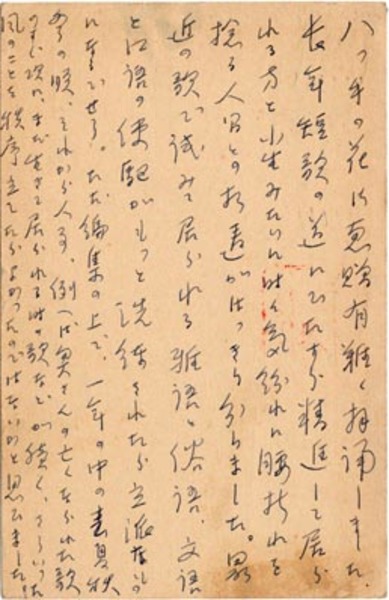 八つ手の花に恵贈有難く拝誦しました。
長年短歌の道にひたすら精進して居ら
れる方と小生みたいに時々気紛れに腰折れを
捻る人間との相違がはっきり分りました。最
近の歌で試みて居られる雅語と俗語、文語
と口語の使駆がもっと洗練されたら立派なもの
になるでせう。ただ編集の上で、一年の中の春夏秋
冬の順、それから人事、例へば奥さんの亡くなられた歌
のすぐ次に、まだ生きて居られる時の歌などが続く、さういった
風のことを秩序立てたらよかったのではないかと思ひました。